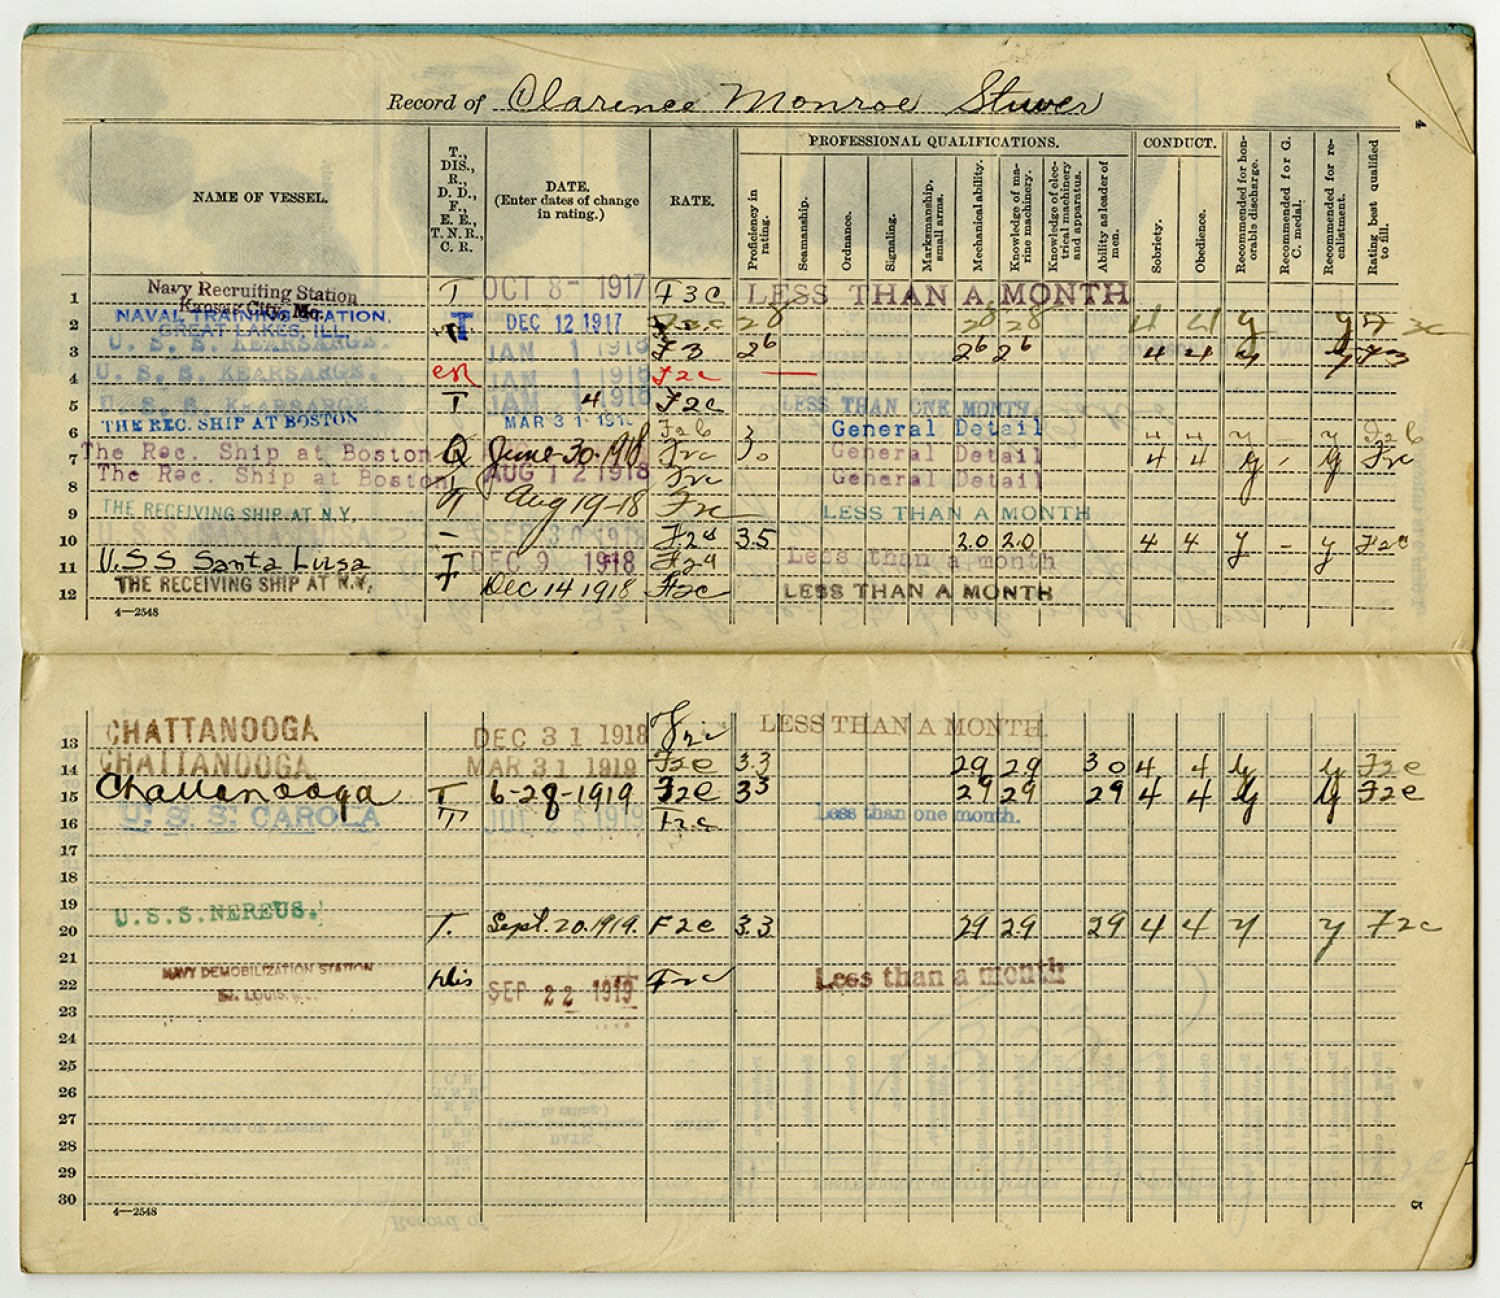 Record of Clarence Monroe Stuver
NAME OF VESSEL.
T., DIS., R., D. D., F., E. E., T. N. R., C. R.
DATE. (Enter dates of change in rating.)
RATE.
PROFESSIONAL QUALIFICATIONS.
Proficiency in rating.
Seamanship.
Ordnance.
Signaling.
Marksmanship, small arms.
Mechanical ability.
Knowledge of marine machinery.
Knowledge of electrical machinery and apparatus.
Ability as leader of men.
CONDUCT.
Sobriety.
Obedience.
Recommended for honorable discharge.
Recommended for G. C. medal.
Recommended for reenlistment.
Rating best qualified to fill.
4
1 Navy Recruiting Station Kansas City, Mo. T OCT 8- 1917 F3C LESS THAN A MONTH
2 NAVAL TRAINING STATION, GREAT LAKES, ILL. T DEC 12 1917 28 28 28 4 4 y y 3c
3 U. S. S. KEARSARGE. JAN 1 1918 F3 26 26 26 4 4 y y F3
4 U. S. S. KEARSARGE. CR JAN 1 1918 F2c
5 U. S. S. KEARSARGE. T JAN 4 1918 F2c LESS THAN ONE MONTH.
6 THE REC. SHIP AT BOSTON MAR 31 1918 General Detail 4 4 y - y
7 The Rec. Ship at Boston Q June-30-1918 F2c General Detail 4 4 y y F2c
8 The Rec. Ship at Boston T AUG 12 1918 F2c General Detail
9 THE RECEIVING SHIP AT N.Y. T Aug 19-18 F2c LESS THAN A MONTH
10 - SEP 30 1918 F2c 35 20 20 4 4 y - y F2c
11 U.S.S Santa Luisa T DEC 9 1918 Less than a month
12 THE RECEIVING SHIP AT N.Y. T Dec 14 1918 F2c LESS THAN A MONTH
4—2548
13 CHATTANOOGA DEC 31 1918 F2c LESS THAN A MONTH
14 CHATTANOOGA MAR 31 1919 F2c 3.3 29 29 30 4 4 y y F2c
15 Chattanooga T 6-28-1919 F2c 33 29 29 29 4 4 y y F2c
16 U. S. S. CAROLA T JUL 25 1919 F2c Less than one month.
17
18
19
20 U.S.S. NEREUS. T. Sept. 20. 1919. F2c 3.3 29 29 29 4 4 y y F2c
21
22 NAVY DEMOBILIZATION STATION ST. LOUIS, MO. Dis SEP 22 1919 F2c Less than a month
23
24
25
26
27
28
29
30
4—2548
5